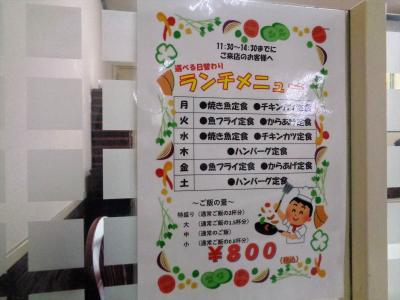 11:30～14:30までに
ご来店のお客様へ
選べる日替わり
ランチメニュー
月 ●焼き魚定食 ●チキンカツ定食
火 ●魚フライ定食 ●からあげ定食
水 ●焼き魚定食 ●チキンカツ定食
木 ●ハンバーグ定食
金 ●魚フライ定食 ●からあげ定食
土 ●ハンバーグ定食
～ご飯の量～
特盛り (通常ご飯の2杯分)
大 (通常ご飯の1.5杯分)
中 (通常のご飯)
小 (通常ご飯の0.8杯分)
￥800 (税込)